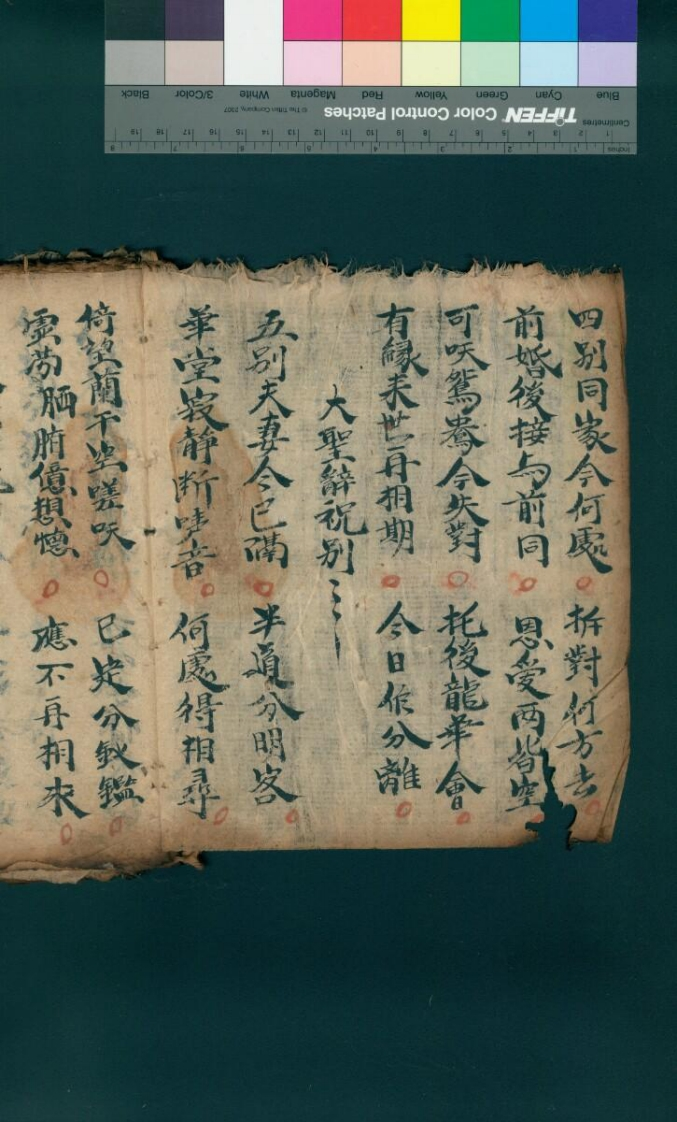 四别同家今何處 拆對何方去
前婚後接与前同 恩愛两皆空
可呌鴛鴦今失對 托後龍華會
有緣来世再相期 今日作分離
大聖辭祝别
五别夫妻今已滿 半道分明客
華堂寂静断哭音 何處得相尋
倚望蘭干空嗟呌 已定分釵鑑
灵前酒脯億想憶 應不再相來
Blue
Cyan
Green
Yellow
Red
Magenta
White
3/Color
Black
TIFFEN Color Control Patches
© The Tiffen Company, 2007
Centimetres
Inches